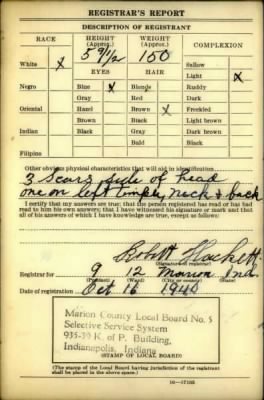 REGISTRAR'S REPORT
DESCRIPTION OF REGISTRANT
RACE
HEIGHT (Approx.)
WEIGHT (Approx.)
COMPLEXION
White X
5 9 1/2
150
Sallow
EYES
HAIR
Light X
Negro
Blue X
Blonde
Ruddy
Gray
Red
Dark
Oriental
Hazel
Brown X
Freckled
Brown
Black
Light brown
Indian
Black
Gray
Dark brown
Bald
Black
Filipino
Other obvious physical characteristics that will aid in identification
3 Scars side of head
one on left temple, neck & back
I certify that my answers are true; that the person registered has read or has had
read to him his own answers; that I have witnessed his signature or mark and that
all of his answers of which I have knowledge are true, except as follows:
Robert
(Signature of registrar)
Registrar for 9 12 Marion Ind.
(Precinct) (Ward) (City or county) (State)
Date of registration Oct 16 1940
Marion County Local Board No. 5
Selective Service System
935-39 K. of P. Building,
Indianapolis, Indiana
(STAMP OF LOCAL BOARD)
(The stamp of the Local Board having jurisdiction of the registrant
shall be placed in the above space.)